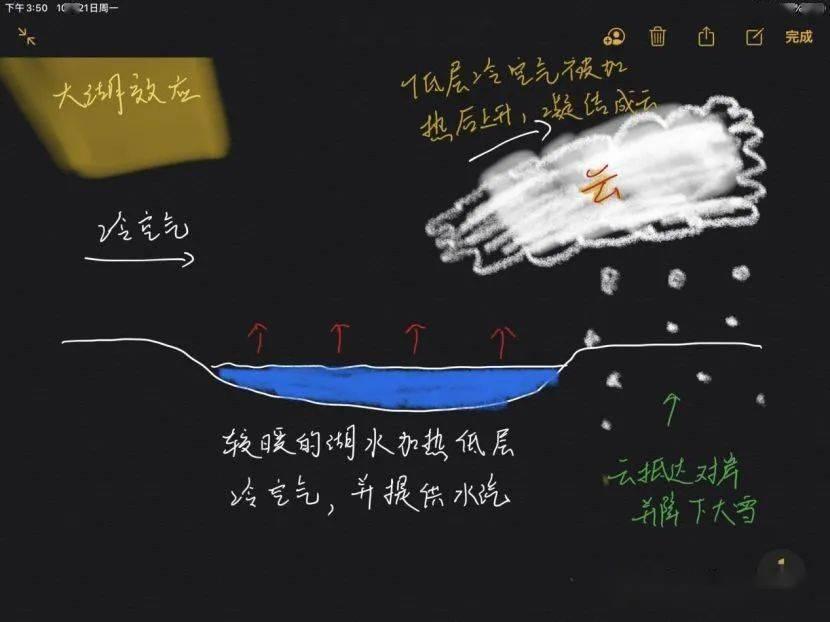 下午3:50
21日周一
完成
大湖效应
低层冷空气被加
热后上升，凝结成云
云
冷空气
较暖的湖水加热低层
冷空气，并提供水汽
云抵达对岸
并降下大雪